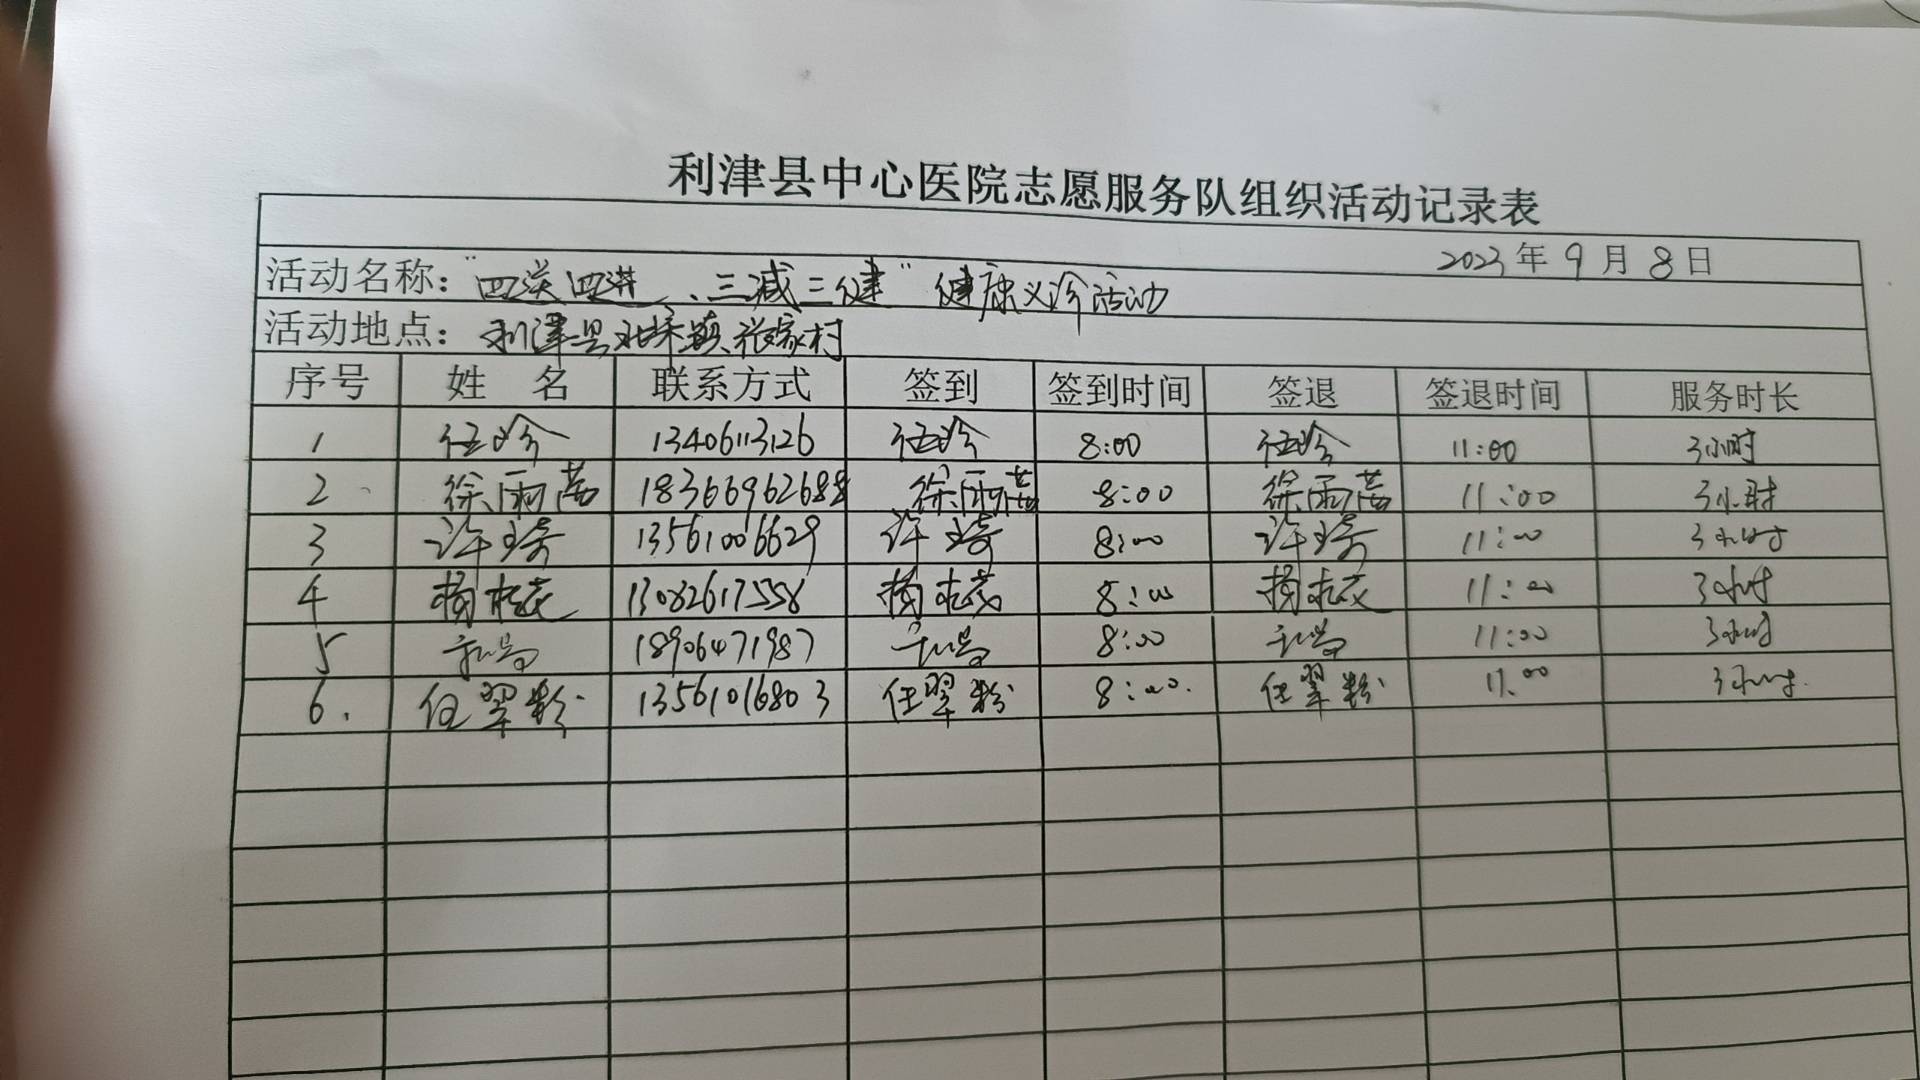 利津县中心医院志愿服务队组织活动记录表
2023年9月8日
活动名称：“四送四进、三减三健”健康义诊活动
活动地点：利津县北宋镇张家村
序号 姓 名 联系方式 签到 签到时间 签退 签退时间 服务时长
1 伍珍 13406113126 伍珍 8:00 伍珍 11:00 3小时
2 徐雨茜 18366962688 徐雨茜 8:00 徐雨茜 11:00 3小时
3 许琦 13561006629 许琦 8:00 许琦 11:00 3小时
4 13082617558 8:00 11:00 3小时
5 18906471987 8:00 11:00 3小时
6. 任翠粉 13561016803 任翠粉 8:00. 任翠粉 11:00 3小时.